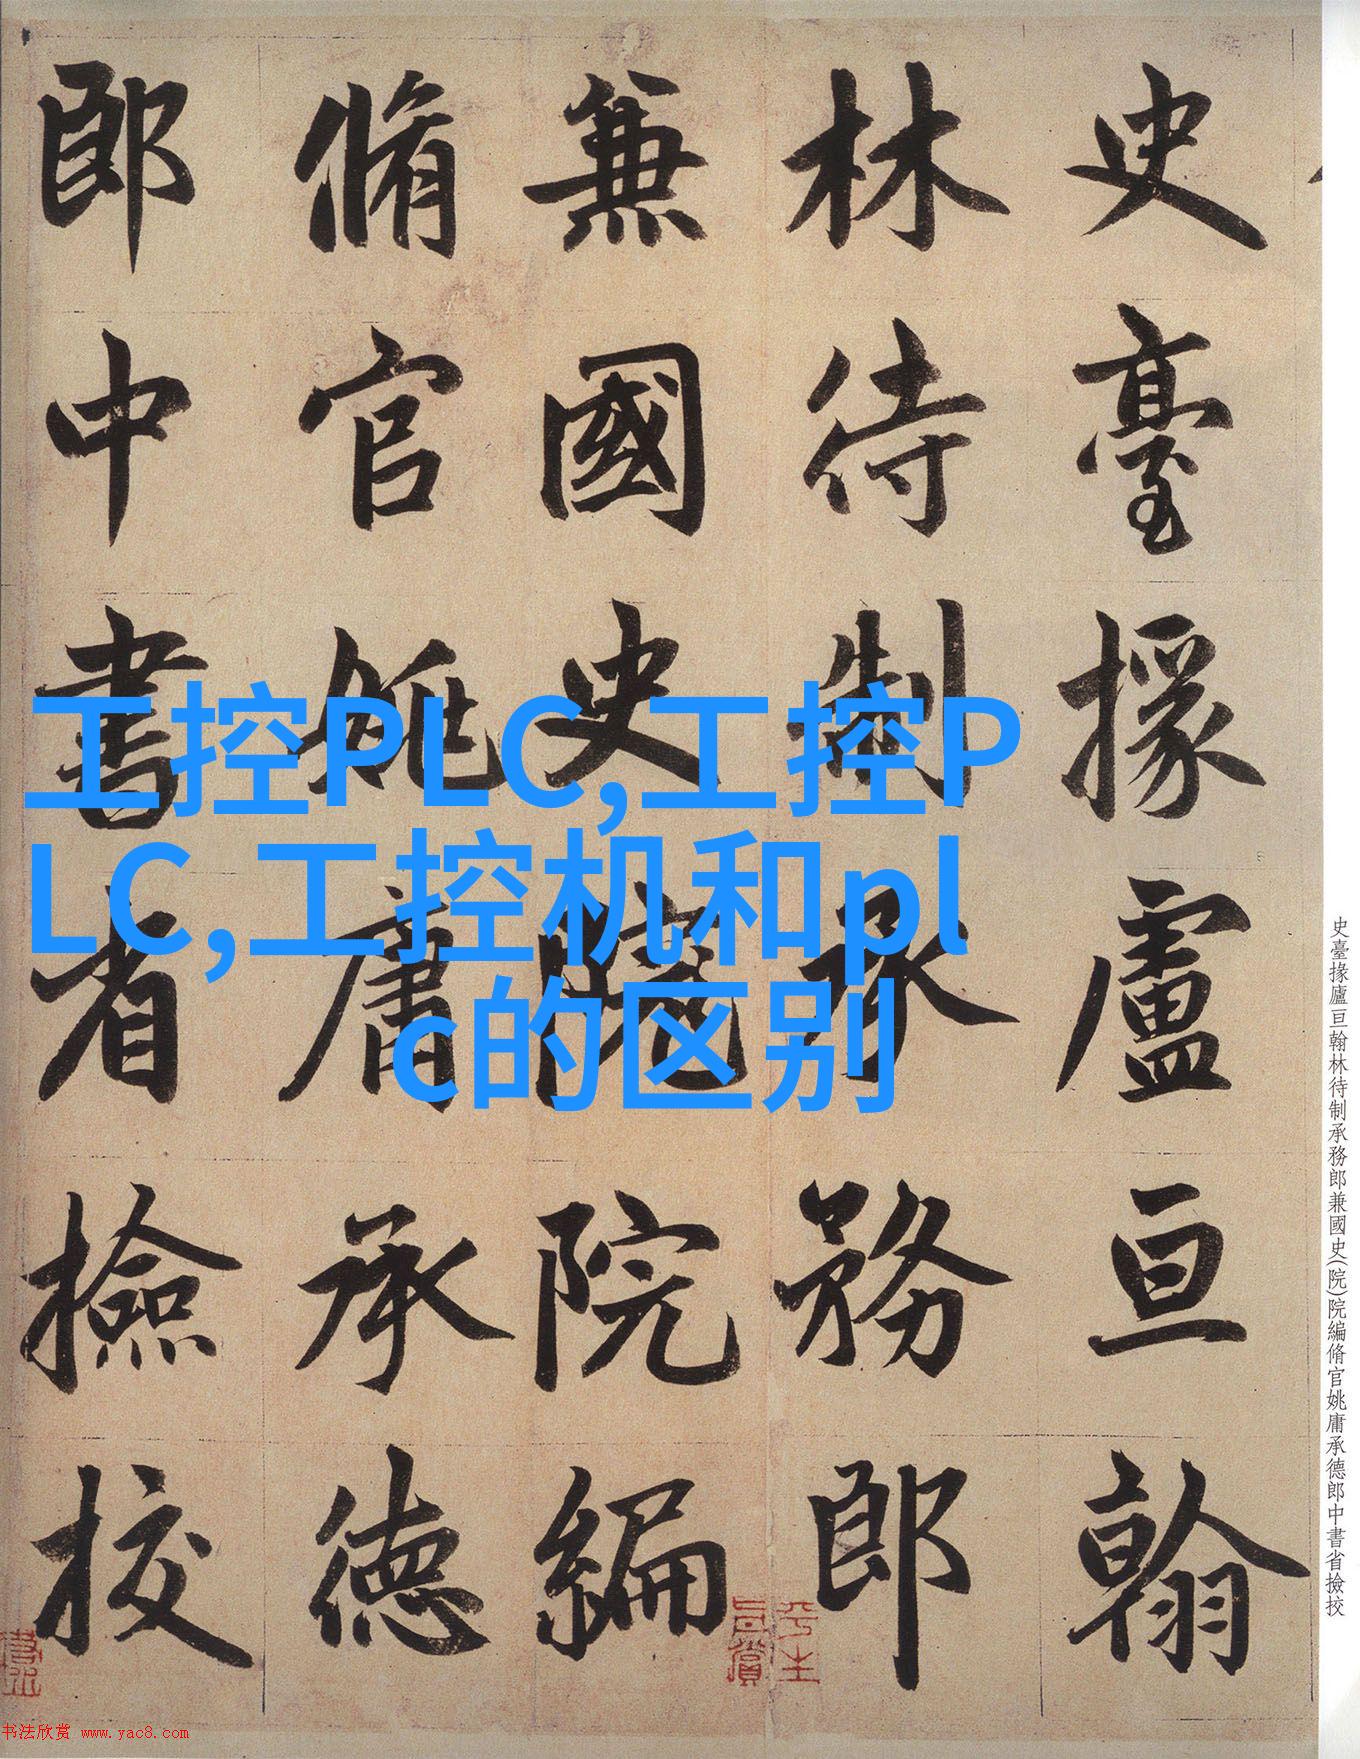 工控PLC,工控P
LC,工控机和pl
c的区别
史臺掾盧亘翰
林待制承務郎
兼國史院院編
脩官姚庸承德
郎中書省撿挍
史臺掾廬亘翰林待制承務郎兼國史(院)院編脩官姚庸承德郎中書省撿挍
平生
真賞
书法欣赏 www.yac8.com